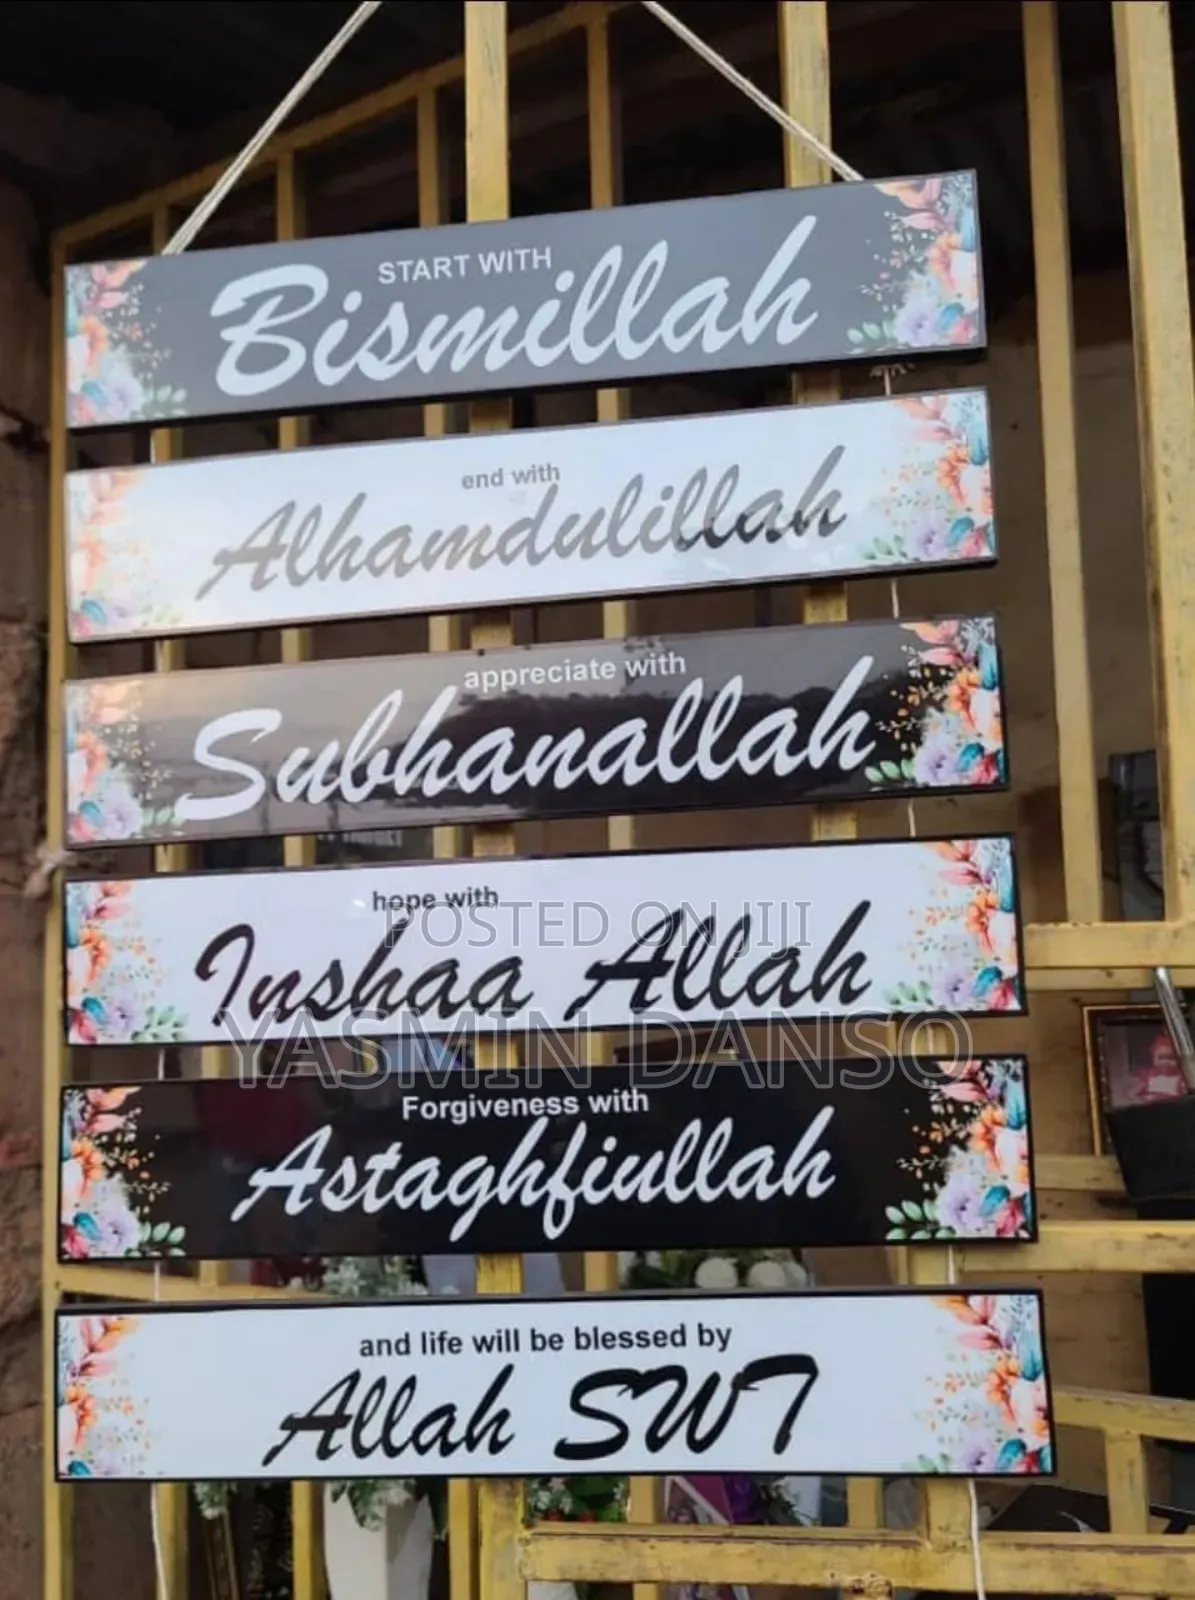 START WITH
Bismillah
end with
Alhamdulillah
appreciate with
Subhanallah
hope with
Inshaa Allah
POSTED ON JIJI
YASMIN DANSO
Forgiveness with
Astaghfiullah
and life will be blessed by
Allah SWT